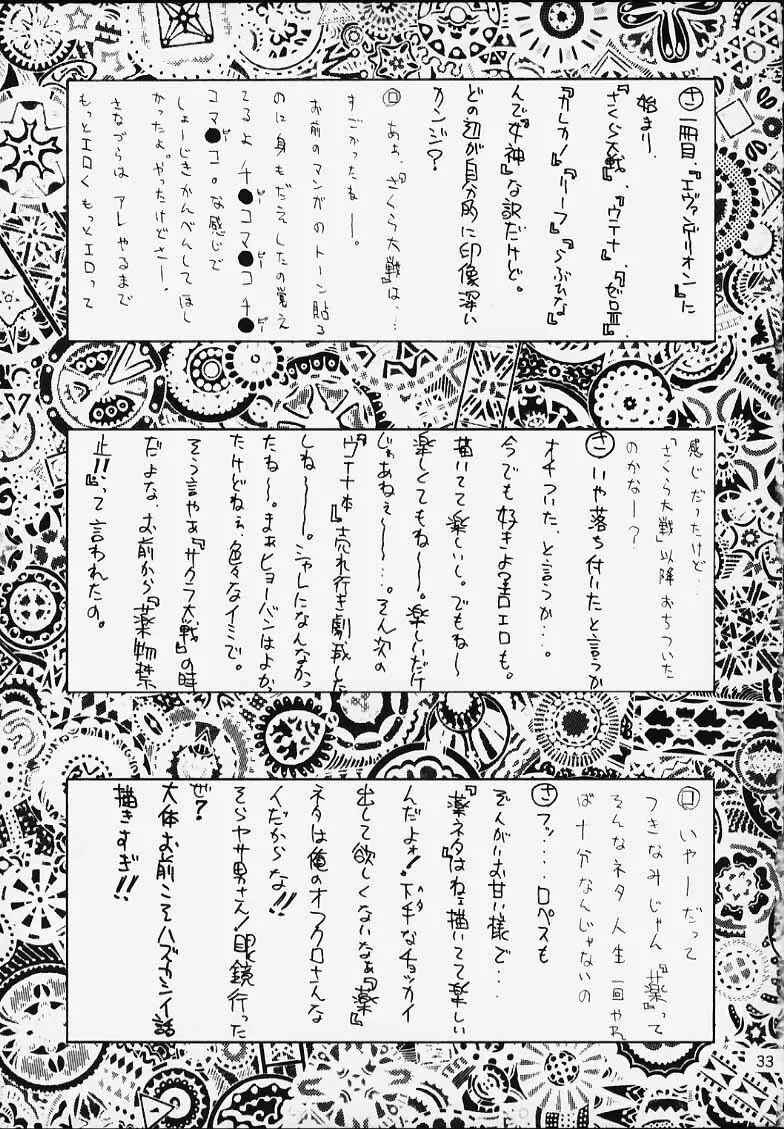 ㋚一冊目、『エヴァンゲリオン』に
始まり、
『さくら大戦』、『ウテナ』、『ゼロⅢ』
『カレカノ』『リーフ』『らぶひな』
んで『女神』な訳だけど。
どの辺が自分的に印像深い
カンジ？
㋺ あぁ、『さくら大戦』は…
すごかったねー。
お前のマンガのトーン貼る
のに身もだえしたの覚え
てるよ チ●コマ●コチ●
コマ●コ。な感じで
しょーじきかんべんしてほし
かったよ。やったけどさー、
さなづらは アレやるまで
もっとエロくもっとエロって
感じだったけど…
「さくら大戦」以降おちついた
のかなー？
㋚いや落ち付いたと言うか
オチついた、と言うか…。
今でも好きよ?エロエロも。
描いてて楽しいし。でもね〜
楽しくてもね〜。楽しいだけ
じゃあねぇ〜…。そん次の
『ウテナ本』売れ行き劇減した
しね〜。シャレになんなかっ
たね〜。まぁヒョーバンはよかっ
たけどねぇ、色々なイミで。
そう言やぁ『サクラ大戦』の時
だよな、お前から『薬物禁
止!!』って言われたの。
㋺ いやーだって
つきなみじゃん『薬』って
そんなネタ人生一回やれ
ば十分なんじゃないの
㋚フッ…ロペスも
ぞんがいお甘い様で…
『薬ネタはね』描いてて楽しい
んだよォ!下手なチョッカイ
出して欲しくないなぁ『薬』
ネタは俺のオフクロさんな
んだからな!!
そらヤサ男さん!眼鏡行った
ぜ?
大体お前こそハズカシイ話
描きすぎ!!
33